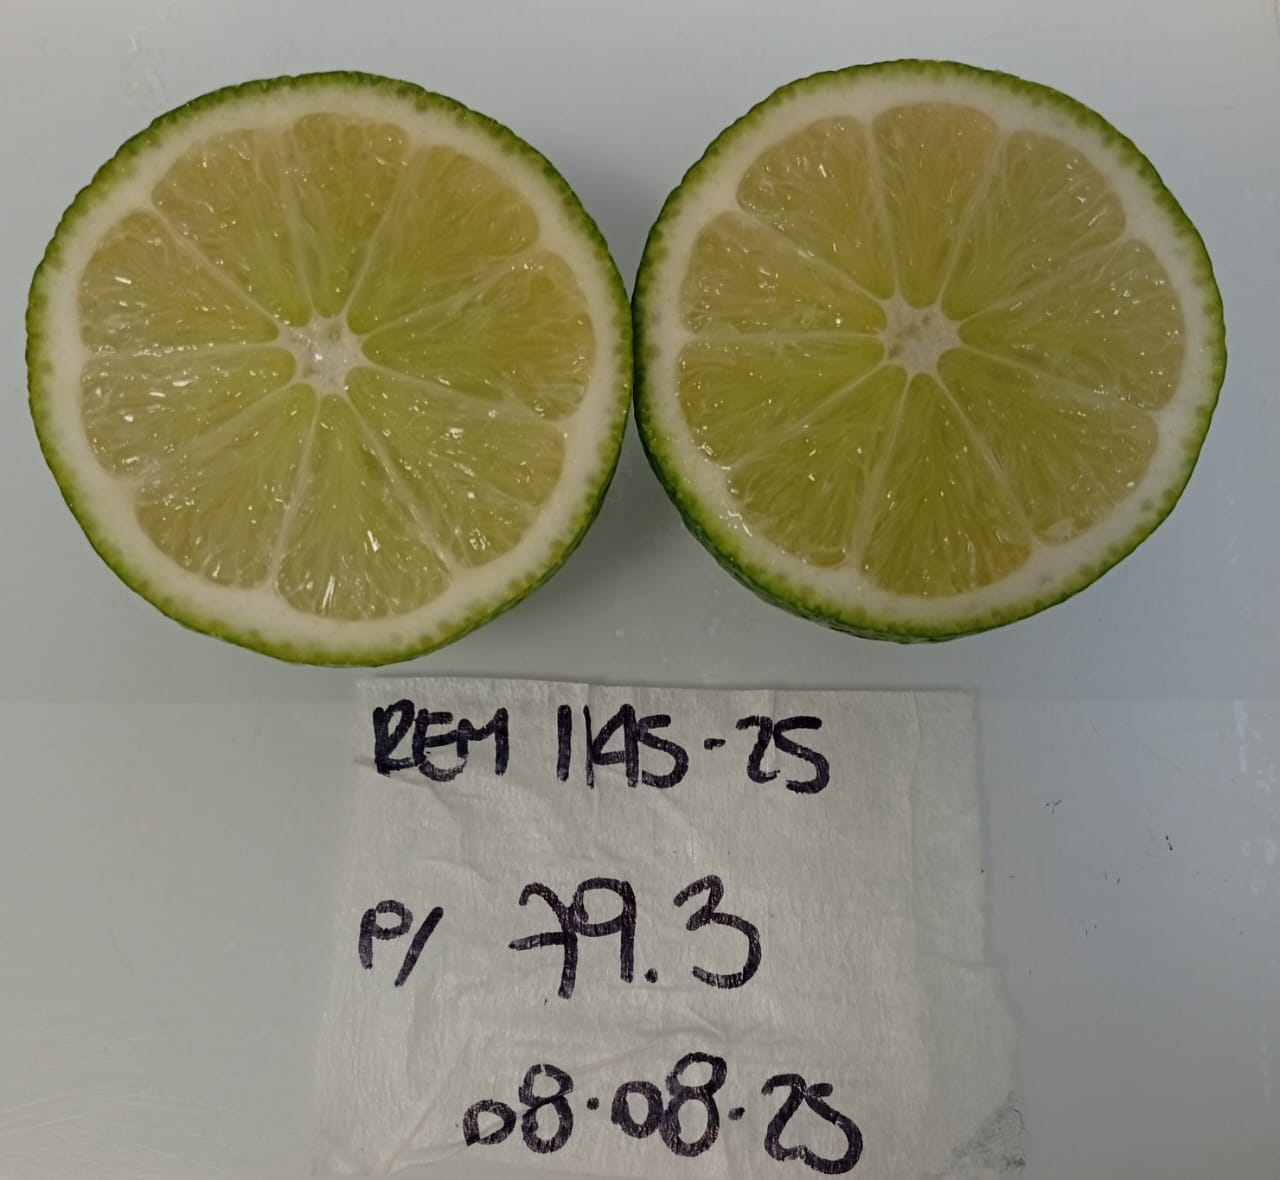 REM 1145-25
P/ 79.3
08.08.25